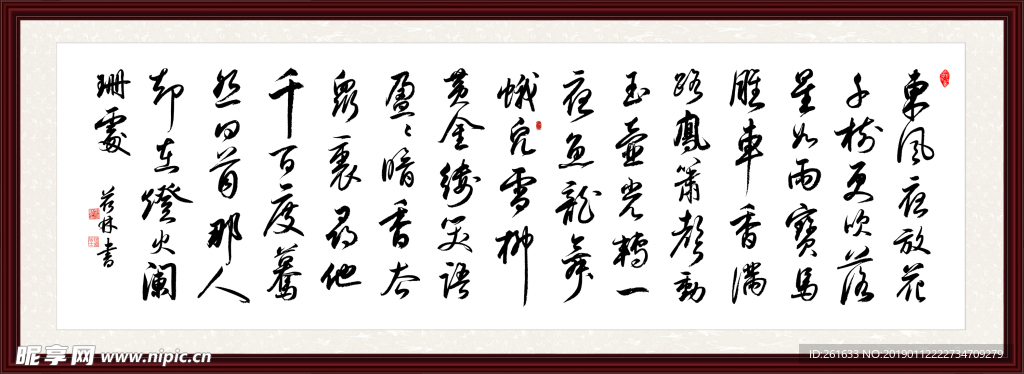 東風夜放花
千樹更吹落
星如雨寶馬
雕車香滿
路鳳簫聲動
玉壺光轉一
夜魚龍舞
蛾兒雪柳
黃金縷笑語
盈盈暗香去
眾裏尋他
千百度驀
然回首那人
却在燈火闌
珊處
林書
昵享网 www.nipic.cn
ID:261633 NO:20190112222734709279